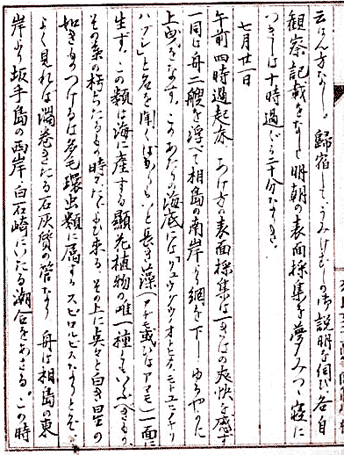 云はん方なし。帰宿してうみけむしの御説明を伺ひ各自
観察記載をなして明朝の表面採集を夢みつつ寝に
つきしは十時過ぐる二十分なりき。
七月廿一日
午前四時過起床 あけ方の表面採集は爽快を感ず
一同は舟二艘を浮べて相島の南岸に網を下し ゆるやかに
上曳をなす。このあたりの海底には(リュウグウノオトヒメノモトユヒノキリ
ハヅシ)と名を聞くばかりいと長き藻(アヂモ或ひはアマモ)一面に
生ず。この類は海に産する顕花植物の唯一種ともいふべきもの
その葉の朽ちたるもの時々たゞよひ来る。その上に点々と白き星の
如きものつけるは多毛環虫類に属するスピロルビスなりとぞ
よく見れば渦巻きたる石灰質の管なり 舟は相島の東
岸より坂手島の西岸白石崎にいたる潮合をあさる。この時